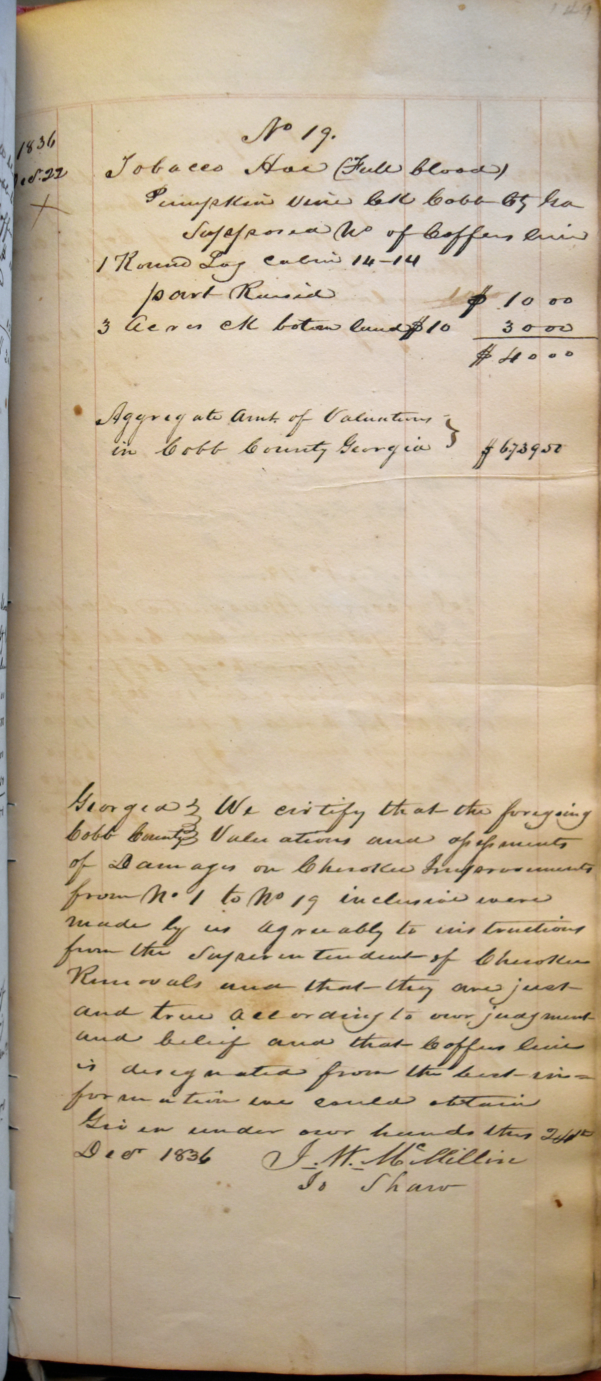 149
No 19.
1836
Decr. 22
Tobacco Hoe (Full blood)
Pumpkin Vine Ck Cobb Cty Ga
Supposed No of Coffees line
1 Round Log cabin 14-14
part Raised $ 10 00
3 Acres ck botom land $10 30 00
$ 40 00
Aggregate Amt. of Valuations
in Cobb County Georgia } $ 6739 50
Georgia } We certify that the foregoing
Cobb County } Valuations and assessments
of Damages on Cherokee Improvements
from No 1 to No 19 inclusive were
made by us agreeably to instructions
from the Superintendent of Cherokee
Removals and that they are just
and true according to our judgment
and belief and that Coffees line
is designated from the best in=
formation we could obtain
Given under our hands this 24th
Decr 1836 J. W. McMillin
Jo Shaw